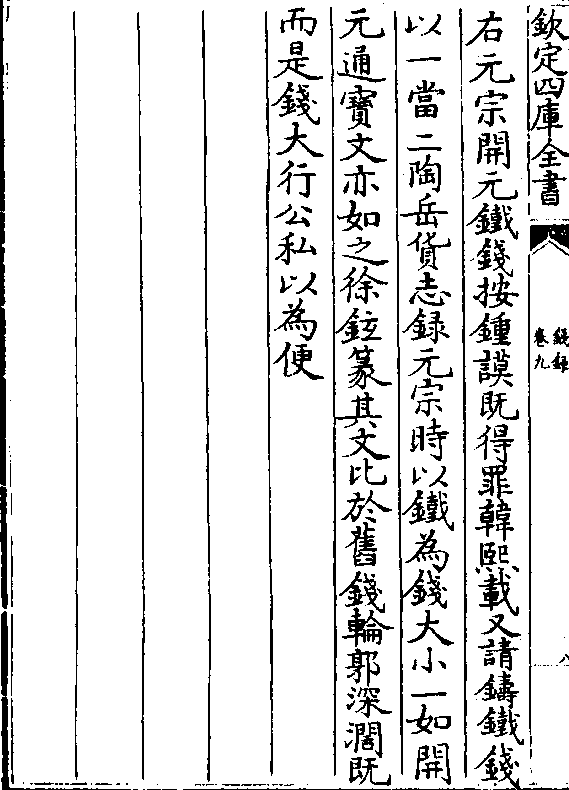 欽定四庫全書
錢録
卷九
八
右元宗開元鐵錢按鍾謨既得罪韓熙載又請鑄鐵錢
以一當二陶岳貨志録元宗時以鐵為錢大小一如開
元通寶文亦如之徐鉉篆其文比於舊錢輪郭深濶既
而是錢大行公私以為便